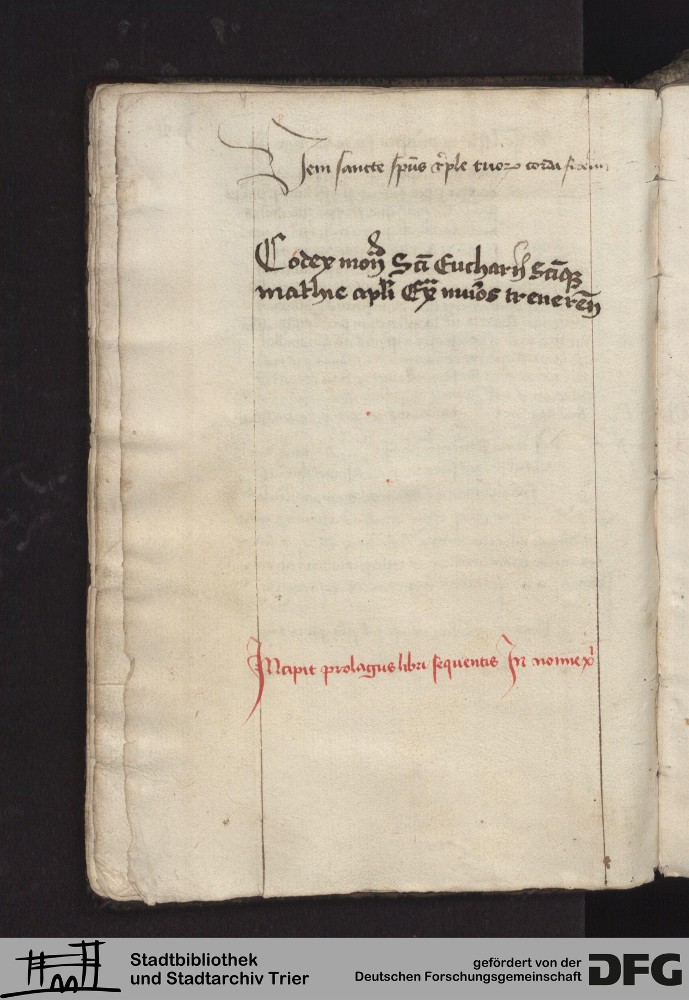 Veni sancte sp̄us reple tuoꝝ corda fidelium
Codex mon̄ Sc̄i Eucharii Sc̄iqꝫ
mathie apl̄i Ex̄ muros treueren̄
Incipit prologus libri sequentis In nomine xp̄i
Stadtbibliothek
und Stadtarchiv Trier
gefördert von der
Deutschen Forschungsgemeinschaft
DFG